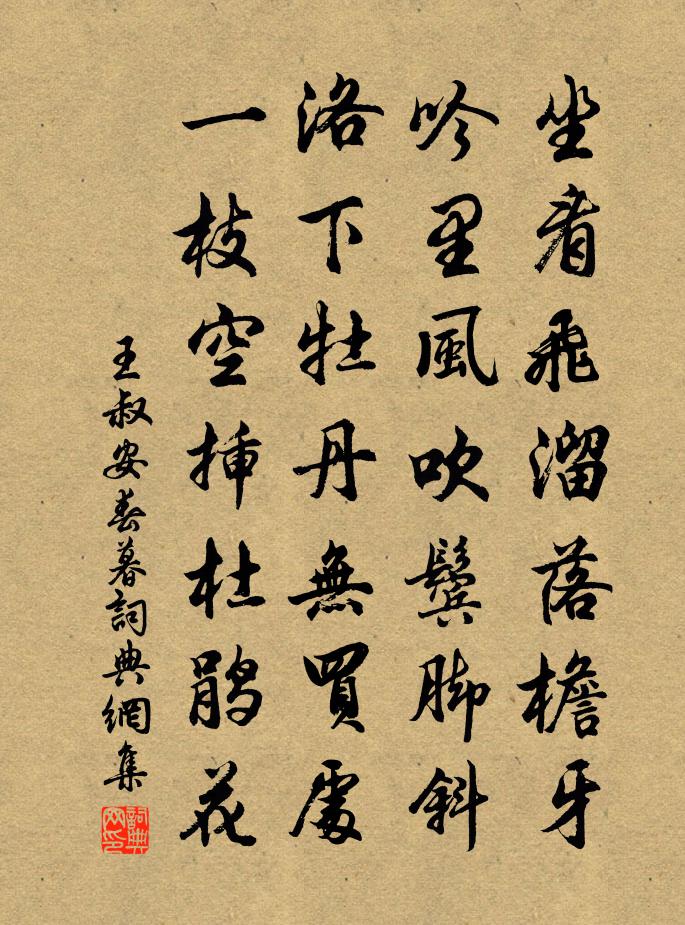 坐看飛溜落檐牙
吟里風吹鬓脚斜
洛下牡丹無買處
一枝空挿杜鹃花
王叔安春暮詞典網集
詞典网印